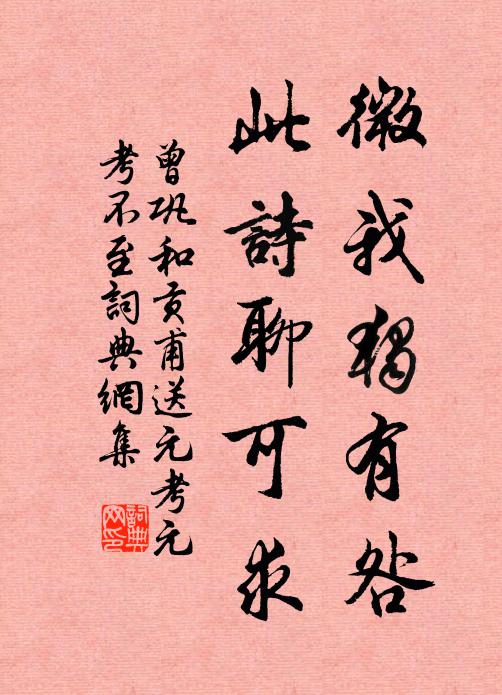 微我獨有咎
此詩聊可求
曾巩和貢甫送元考元
考不至詞典網集
詞典网印